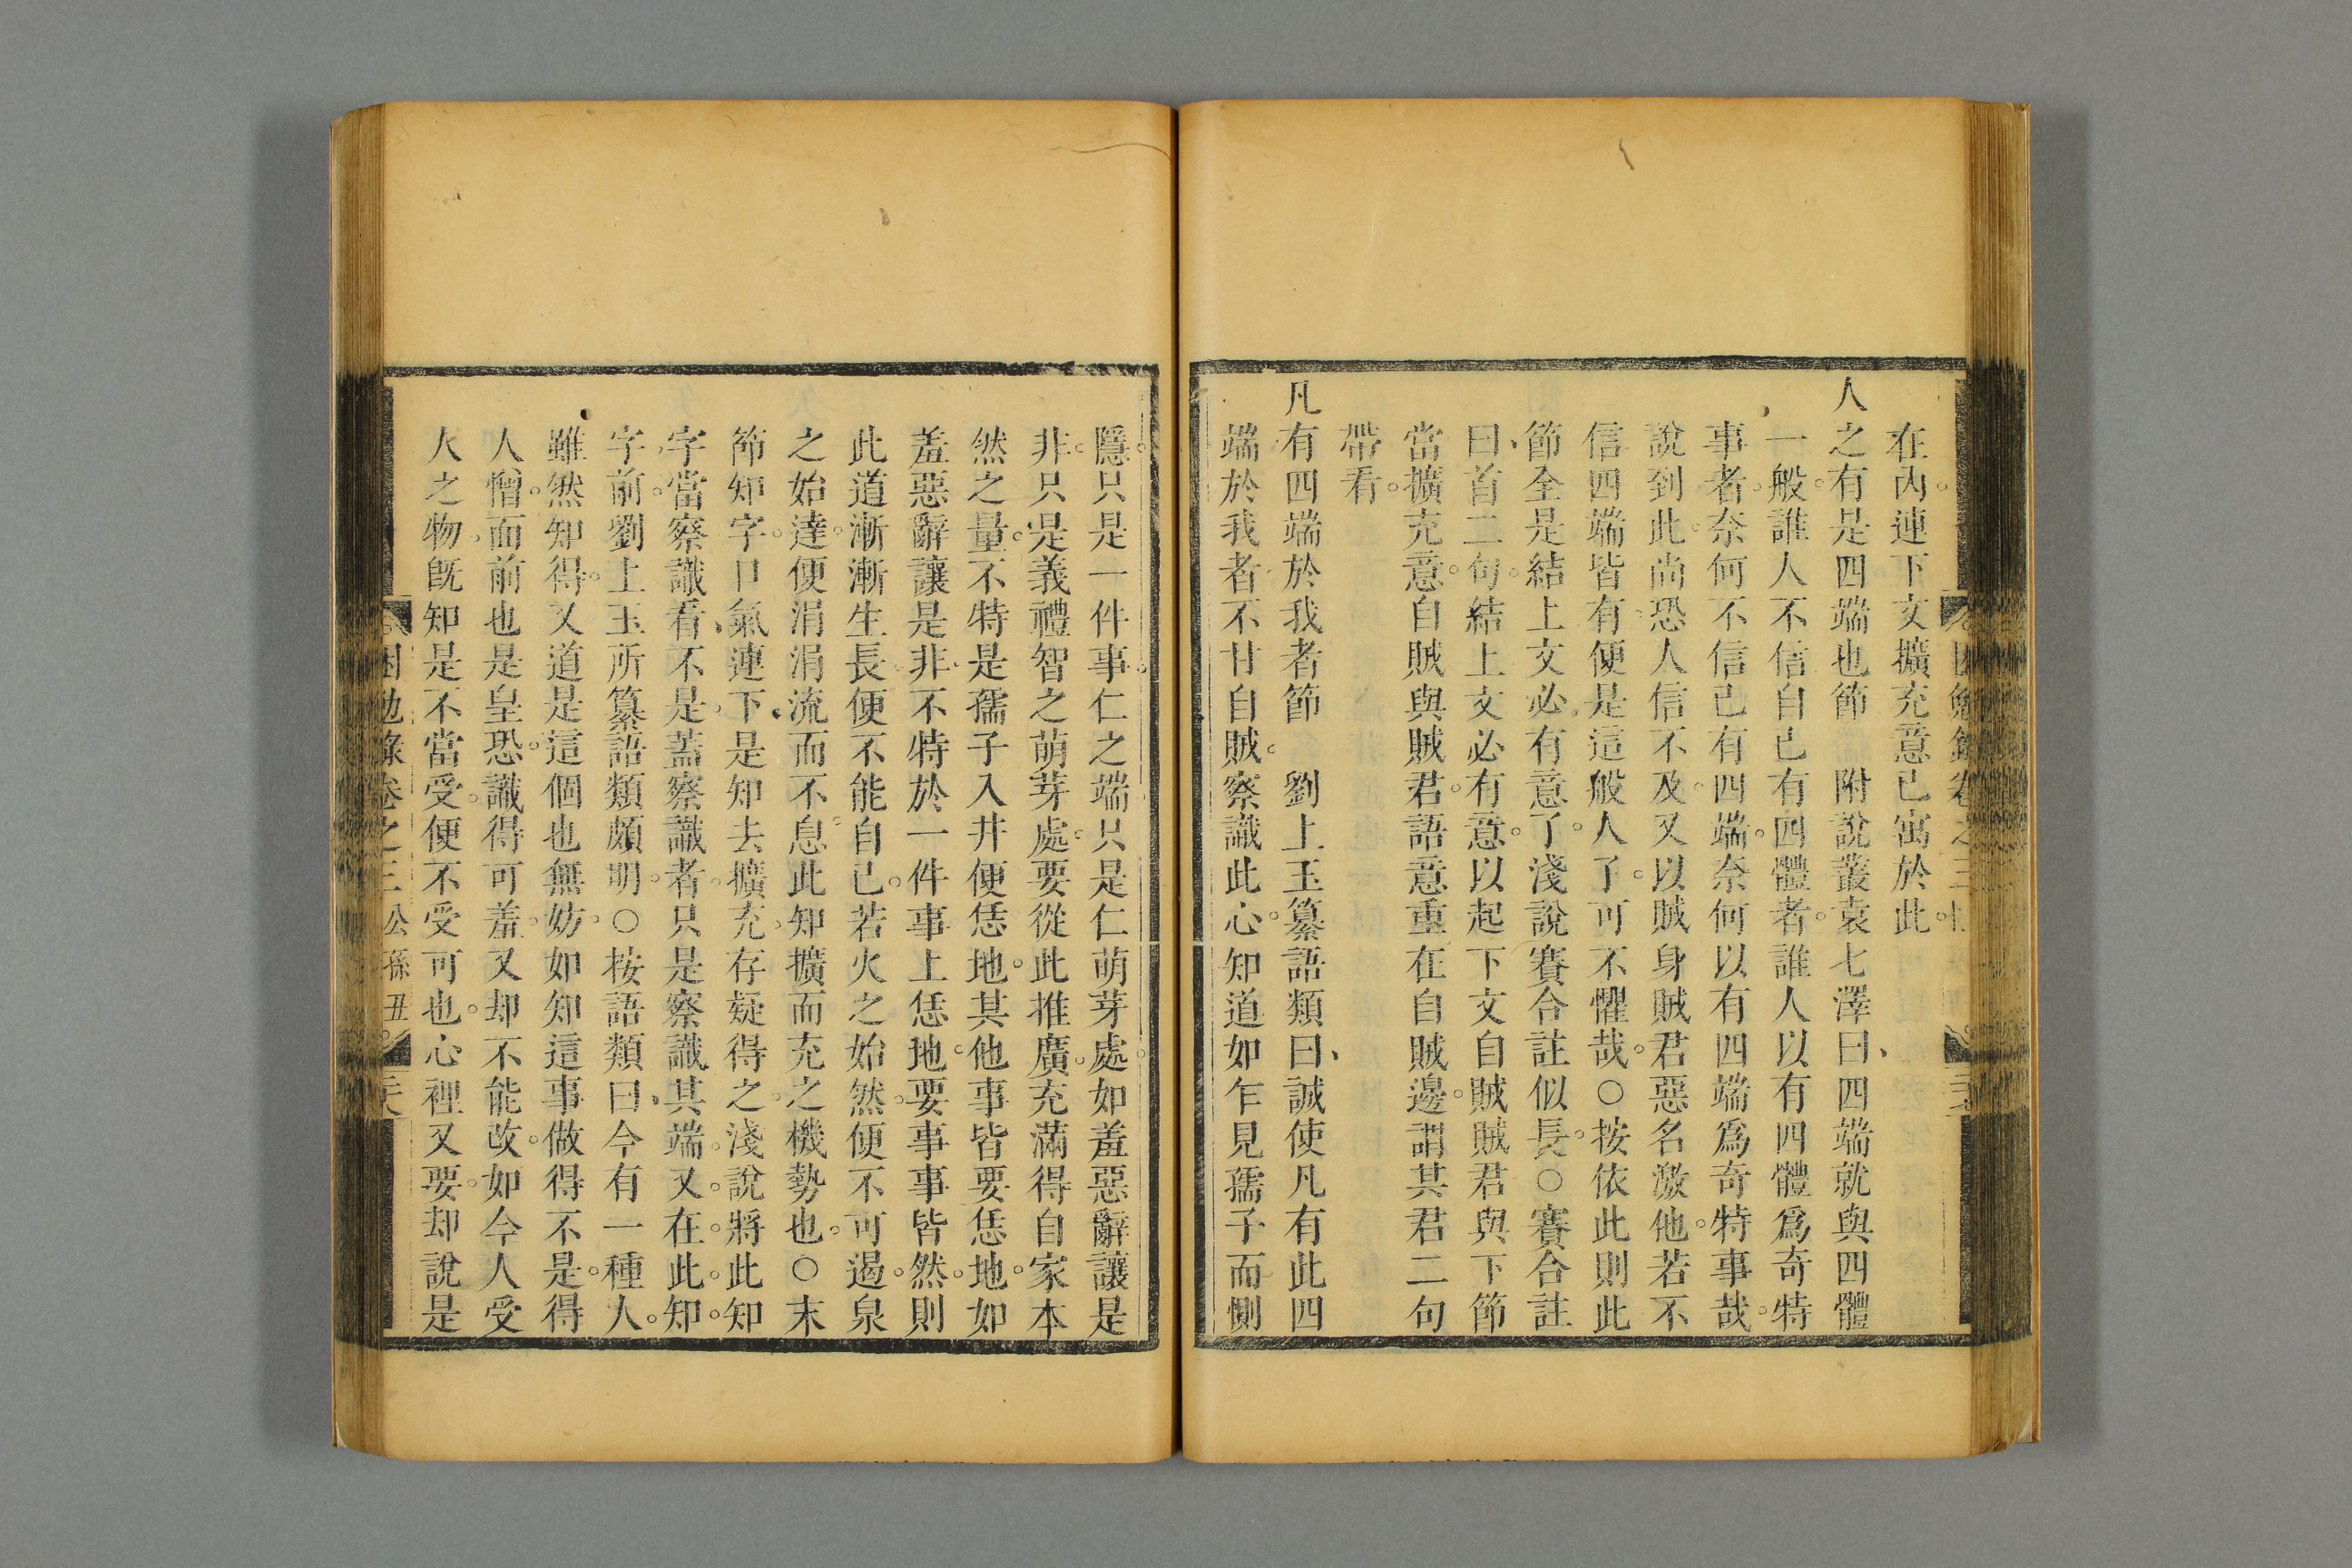 在內連下文擴充意已寓於此
人之有是四端也節 附說叢袁七澤曰四端就與四體
一般誰人不信自已有四體者誰人以有四體爲奇特
事者奈何不信已有四端奈何以有四端爲奇特事哉
說到此尚恐人信不及又以賊身賊君惡名激他若不
信四端皆有便是這般人了可不懼哉○按依此則此
節全是結上文必有意了淺說賽合註似長○賽合註
曰首二句結上文必有意以起下文自賊賊君與下節
當擴充意自賊與賊君語意重在自賊邊謂其君二句
帶看
凡有四端於我者節 劉上玉纂語類曰誠使凡有此四
端於我者不甘自賊察識此心知道如乍見孺子而惻
隱只是一件事仁之端只是仁萌芽處如羞惡辭讓是
非只是義禮智之萌芽處要從此推廣充滿得自家本
然之量不特是孺子入井便恁地其他事皆要恁地如
羞惡辭讓是非不特於一件事上恁地要事事皆然則
此道漸漸生長便不能自已若火之始然便不可遏泉
之始達便涓涓流而不息此知擴而充之機勢也○末
節知字口氣連下是知去擴充存疑得之淺說將此知
字當察識看不是蓋察識者只是察識其端又在此知
字前劉上玉所纂語類頗明○按語類曰今有一種人
雖然知得又道是這個也無妨如知這事做得不是得
人憎面前也是皇恐識得可羞又却不能改如今人受
人之物既知是不當受便不受可也心裡又要却說是
困勉錄卷之三 公孫丑